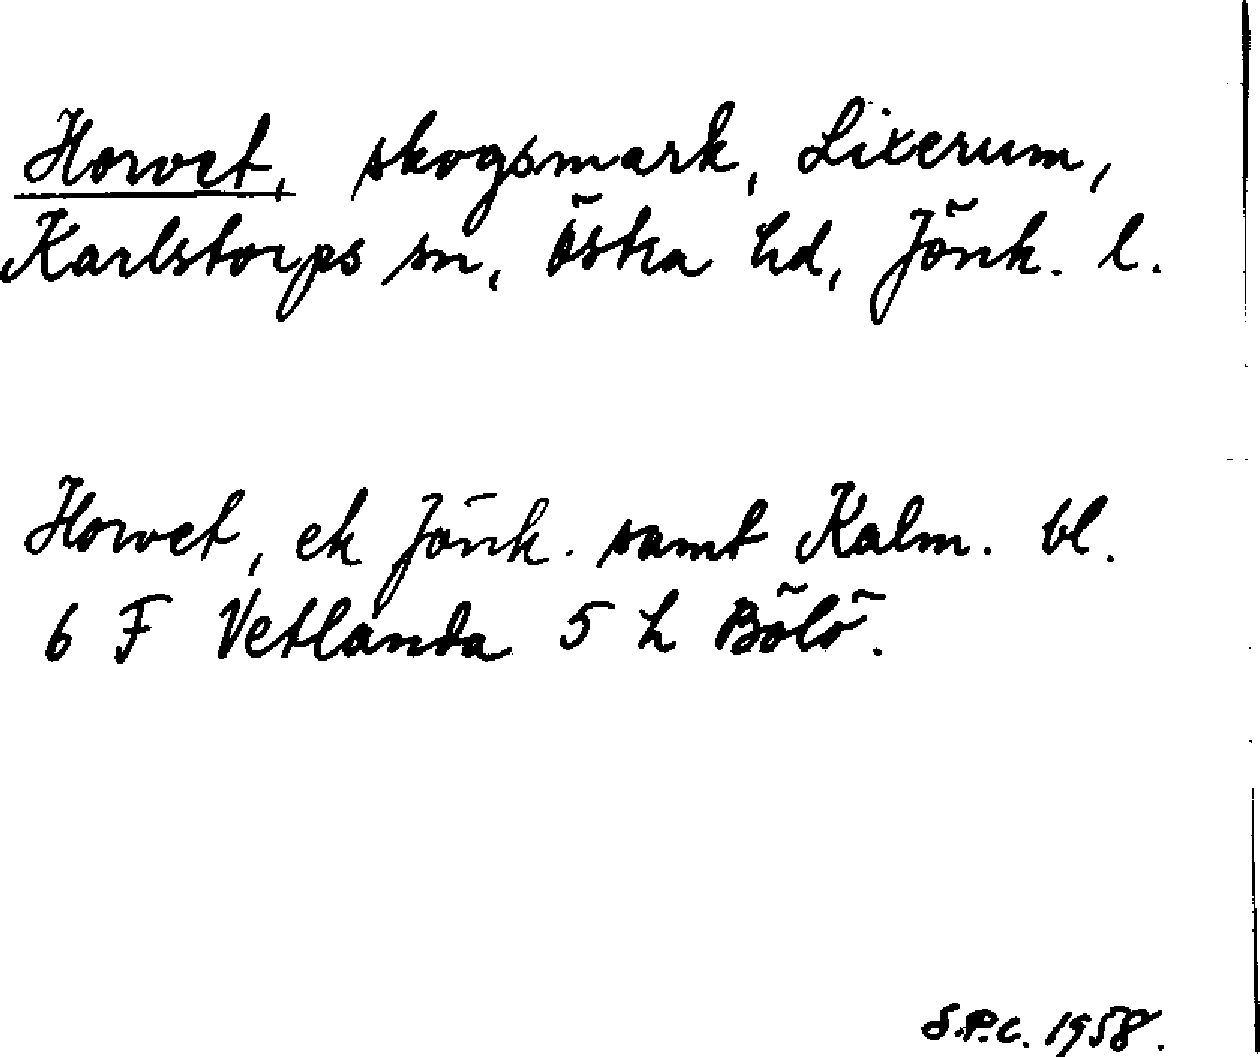 Horvet, skogsmark, Lixerum,
Karlstorps sn, Östra hd, Jönk. l.
Horvet, ek Jönk. samt Kalm. bl.
6 F Vetlanda 5 h Bölö.
S.P.C. 1958.